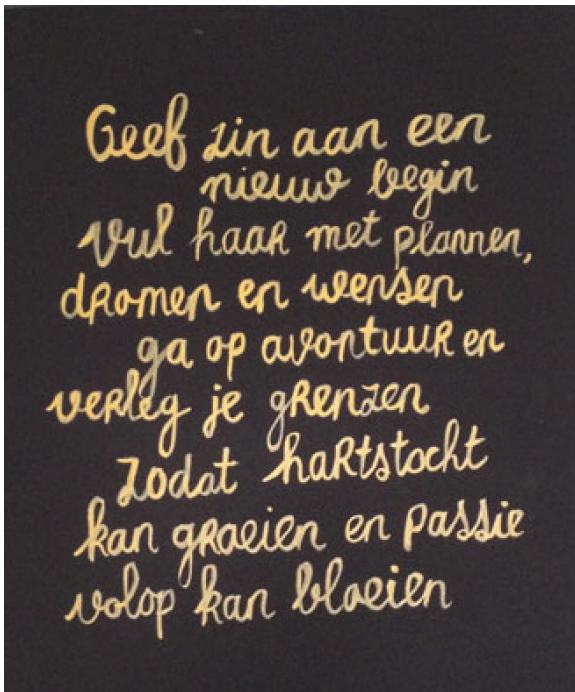 Geef zin aan een
nieuw begin
vul haar met plannen,
dromen en wensen
ga op avontuur en
verleg je grenzen
zodat hartstocht
kan groeien en passie
volop kan bloeien